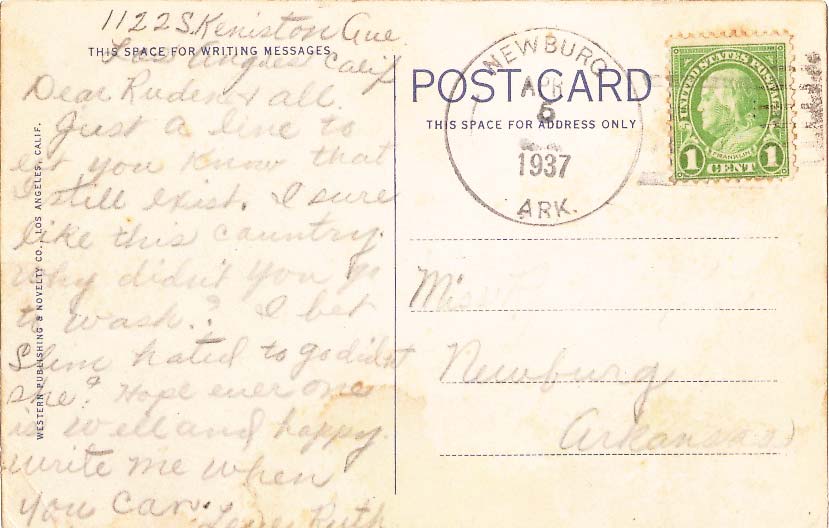 1122 S. Keniston Ave
THIS SPACE FOR WRITING MESSAGES
Los Angles Calif
Dear all
Just a line to
let you know that
I still exist. I sure
like this country.
Why didn't you go
to wash.? I bet
Slim hated to go didn't
she? Hope ever one
is well and happy.
Write me when
you can.
Love Ruth
WESTERN PUBLISHING & NOVELTY CO., LOS ANGELES, CALIF.
NEWBURG
APR
5
1937
ARK.
POST CARD
THIS SPACE FOR ADDRESS ONLY
UNITED STATES POSTAGE
FRANKLIN
1 CENT 1
Miss
Newburg
Arkansas